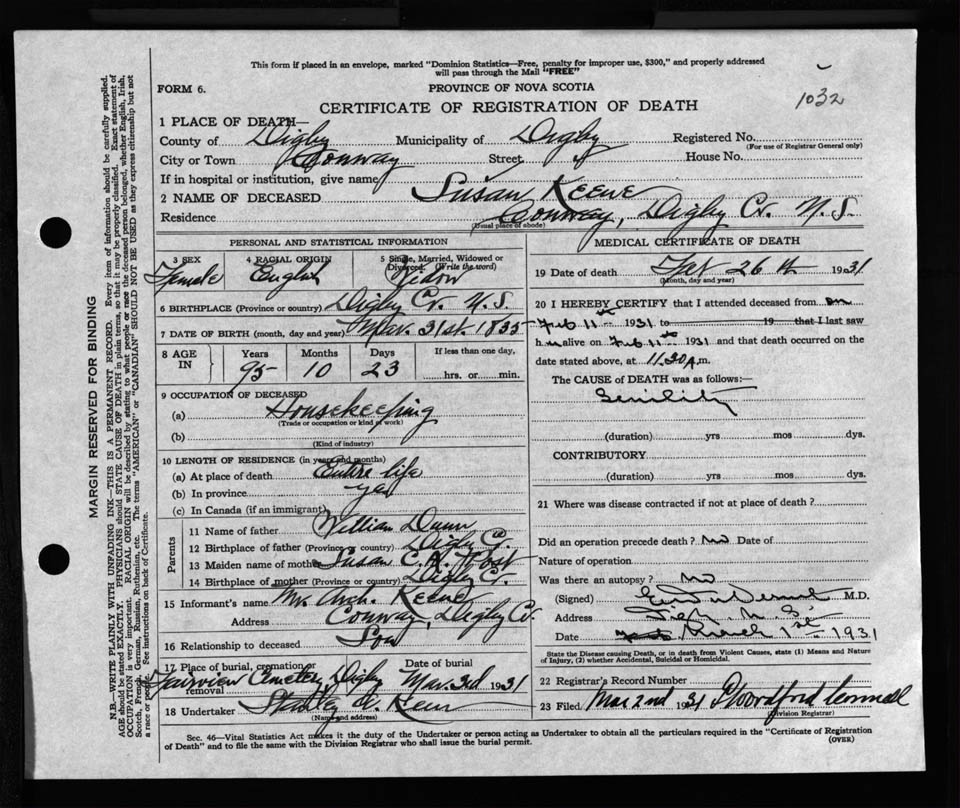 This form if placed in an envelope, marked "Dominion Statistics—Free, penalty for improper use, $300," and properly addressed
will pass through the Mail "FREE"
FORM 6.
PROVINCE OF NOVA SCOTIA
1032
CERTIFICATE OF REGISTRATION OF DEATH
1 PLACE OF DEATH—
County of Digby Municipality of Digby Registered No.
(For use of Registrar General only)
City or Town Conway Street House No.
If in hospital or institution, give name
2 NAME OF DECEASED Susan Keene
Residence Conway, Digby Co. N.S.
(Usual place of abode)
PERSONAL AND STATISTICAL INFORMATION
3 SEX 4 RACIAL ORIGIN 5 Single, Married, Widowed or
Divorced (Write the word)
Female English Widow
6 BIRTHPLACE (Province or country) Digby Co. N.S.
7 DATE OF BIRTH (month, day and year) Mar. 31st. 1835
8 AGE IN Years Months Days If less than one day,
95 10 23 hrs. or min.
9 OCCUPATION OF DECEASED
(a) Housekeeping
(Trade or occupation or kind of work)
(b)
(Kind of industry)
10 LENGTH OF RESIDENCE (in years and months)
(a) At place of death Entire life
(b) In province yes
(c) In Canada (if an immigrant)
Parents
11 Name of father William Dunn
12 Birthplace of father (Province or country) Digby Co.
13 Maiden name of mother Susan C. A.
14 Birthplace of mother (Province or country) Digby Co.
15 Informant's name Mr. Arch. Keene
Address Conway, Digby Co.
16 Relationship to deceased Son
17 Place of burial, cremation or removal Date of burial
Fairview Cemetery Digby Mar. 3rd 1931
18 Undertaker Stanley
(Name and address)
MEDICAL CERTIFICATE OF DEATH
19 Date of death Feb 26th 1931
(Month, day and year)
20 I HEREBY CERTIFY that I attended deceased from on
Feb 11th 1931 to 19 that I last saw
h alive on Feb 11th 1931 and that death occurred on the
date stated above, at 11.30 m.
The CAUSE OF DEATH was as follows:—
Senility
(duration) yrs mos dys.
CONTRIBUTORY
(duration) yrs mos dys.
21 Where was disease contracted if not at place of death?
Did an operation precede death? No Date of
Nature of operation
Was there an autopsy? No
(Signed) M.D.
Address Digby N.S.
Date March 1st 1931
State the Disease causing Death, or in death from Violent Causes, state (1) Means and Nature
of Injury, (2) whether Accidental, Suicidal or Homicidal.
22 Registrar's Record Number
23 Filed Mar 2nd 1931
Division Registrar
Sec. 46—Vital Statistics Act makes it the duty of the Undertaker or person acting as Undertaker to obtain all the particulars required in the "Certificate of Registration
of Death" and to file the same with the Division Registrar who shall issue the burial permit. (OVER)
MARGIN RESERVED FOR BINDING
N.B.—WRITE PLAINLY WITH UNFADING INK—THIS IS A PERMANENT RECORD. Every item of information should be carefully supplied.
AGE should be stated EXACTLY. PHYSICIANS should STATE CAUSE OF DEATH in plain terms, so that it may be properly classified. Exact statement of
OCCUPATION is very important. RACIAL ORIGIN will be described by stating to what people or race the deceased person belonged, whether English, Irish,
Scotch, French, German, Russian, Ruthenian, etc. The terms "AMERICAN" or "CANADIAN" SHOULD NOT BE USED as they express citizenship but not
a race or people. See instructions on back of Certificate.